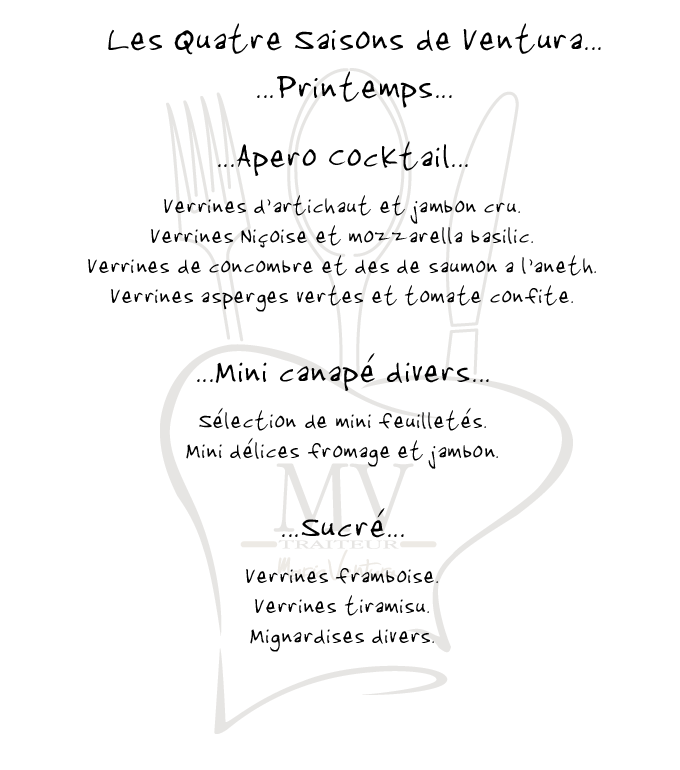 Les Quatre Saisons de Ventura...
...Printemps...
...Apero cocktail...
Verrines d'artichaut et jambon cru.
Verrines Niçoise et mozzarella basilic.
Verrines de concombre et des de saumon a l'aneth.
Verrines asperges vertes et tomate confite.
...Mini canapé divers...
Sélection de mini feuilletés.
Mini délices fromage et jambon.
MV
...Sucré...
TRAITEUR
Verrines framboise.
Verrines tiramisu.
Mignardises divers.